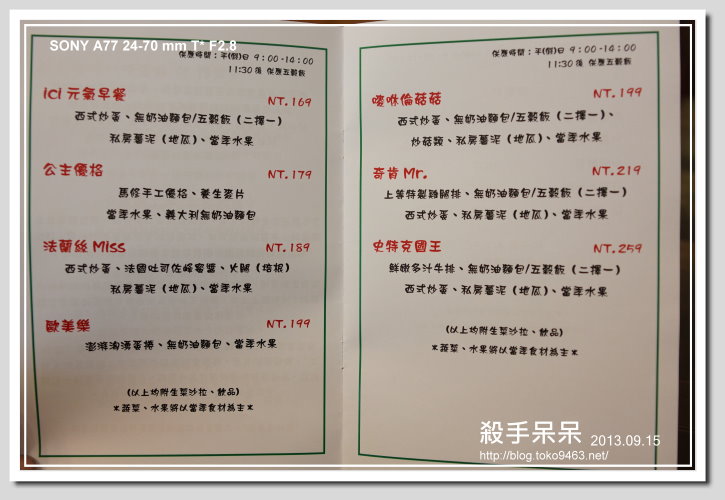 SONY A77 24-70 mm T* F2.8
供應時間：平(假)日 9:00-14:00
11:30後 供應五穀飯
ici 元氣早餐 NT.169
西式炒蛋、無奶油麵包/五穀飯（二擇一）
私房薯泥（地瓜）、當季水果
公主優格 NT.179
馬修手工優格、養生麥片
當季水果、義大利無奶油麵包
法蘭絲 Miss NT.189
西式炒蛋、法國吐司佐蜂蜜醬、火腿（培根）
私房薯泥（地瓜）、當季水果
歐美樂 NT.199
澎湃滑溜蛋捲、無奶油麵包、當季水果
(以上均附生菜沙拉、飲品)
*蔬菜、水果將以當季食材為主*
供應時間：平(假)日 9:00-14:00
11:30後 供應五穀飯
嘜咻倫菇菇 NT.199
西式炒蛋、無奶油麵包/五穀飯（二擇一）、
炒菇類、私房薯泥（地瓜）、當季水果
奇肯 Mr. NT.219
上等特製雞腿排、無奶油麵包/五穀飯（二擇一）
西式炒蛋、私房薯泥（地瓜）、當季水果
史特克國王 NT.259
鮮嫩多汁牛排、無奶油麵包/五穀飯（二擇一）
西式炒蛋、私房薯泥（地瓜）、當季水果
(以上均附生菜沙拉、飲品)
*蔬菜、水果將以當季食材為主*
殺手呆呆 2013.09.15
http://blog.toko9463.net/